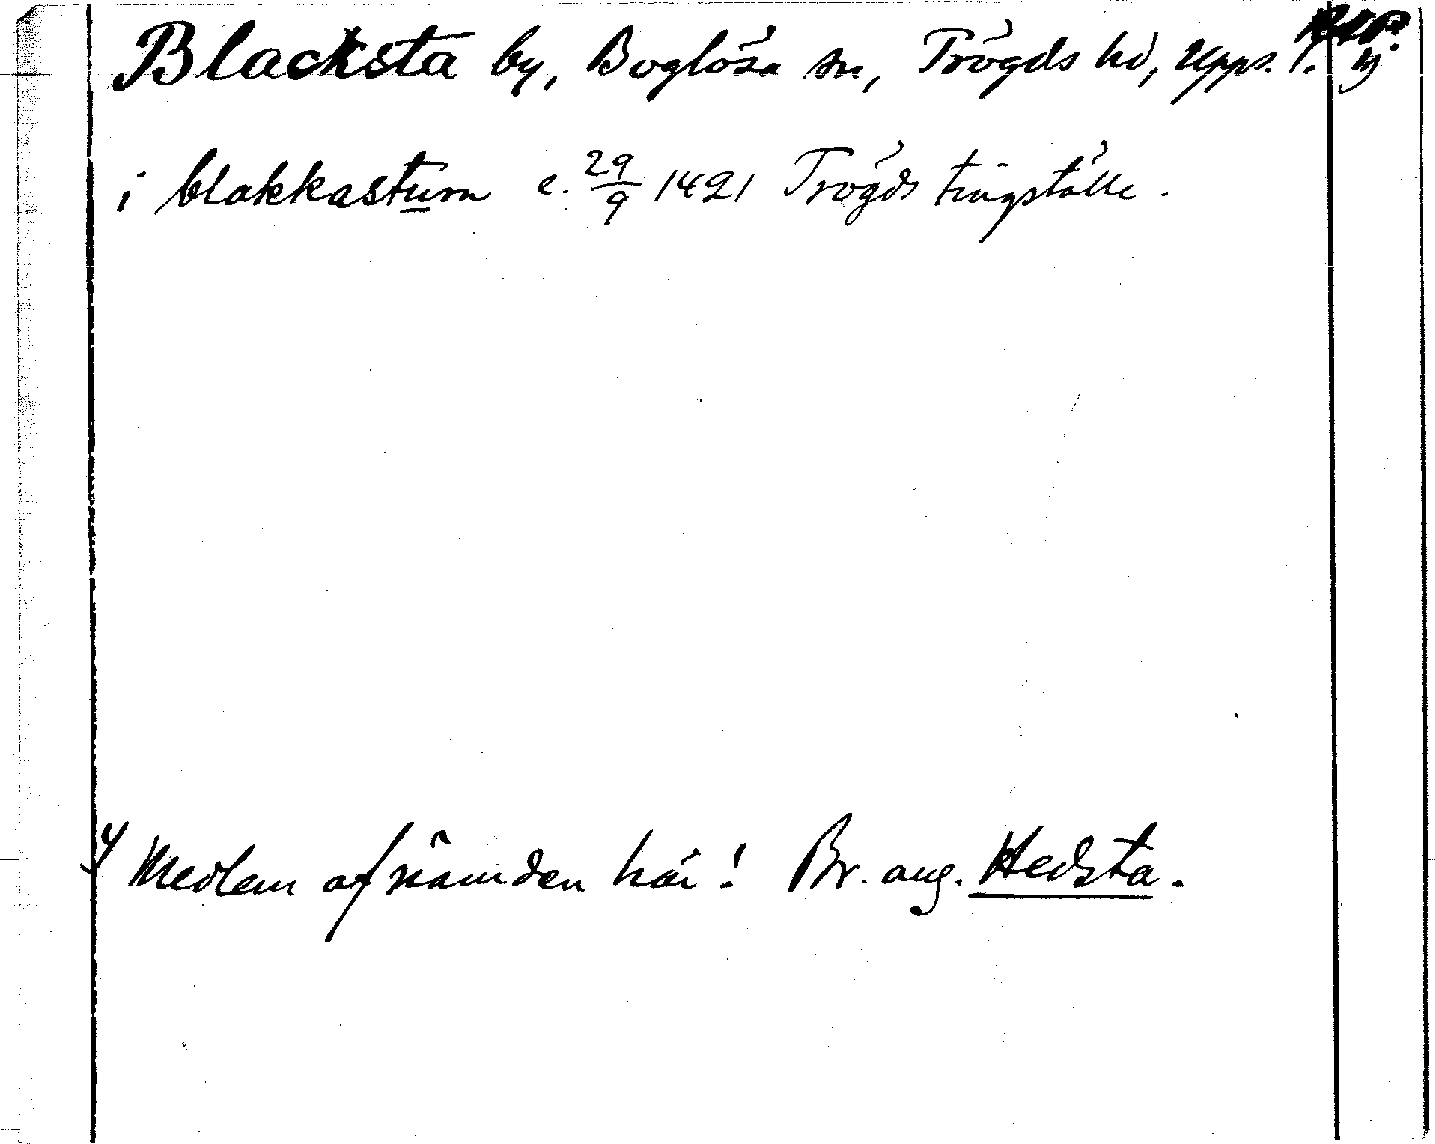 Blacksta by, Boglösa sn, Trögds hd, Upps. l.
i blakkastum c. 29/9 1421 Trögds tingställe.
Medlem af nämnden här! Br. ang. Hedsta.